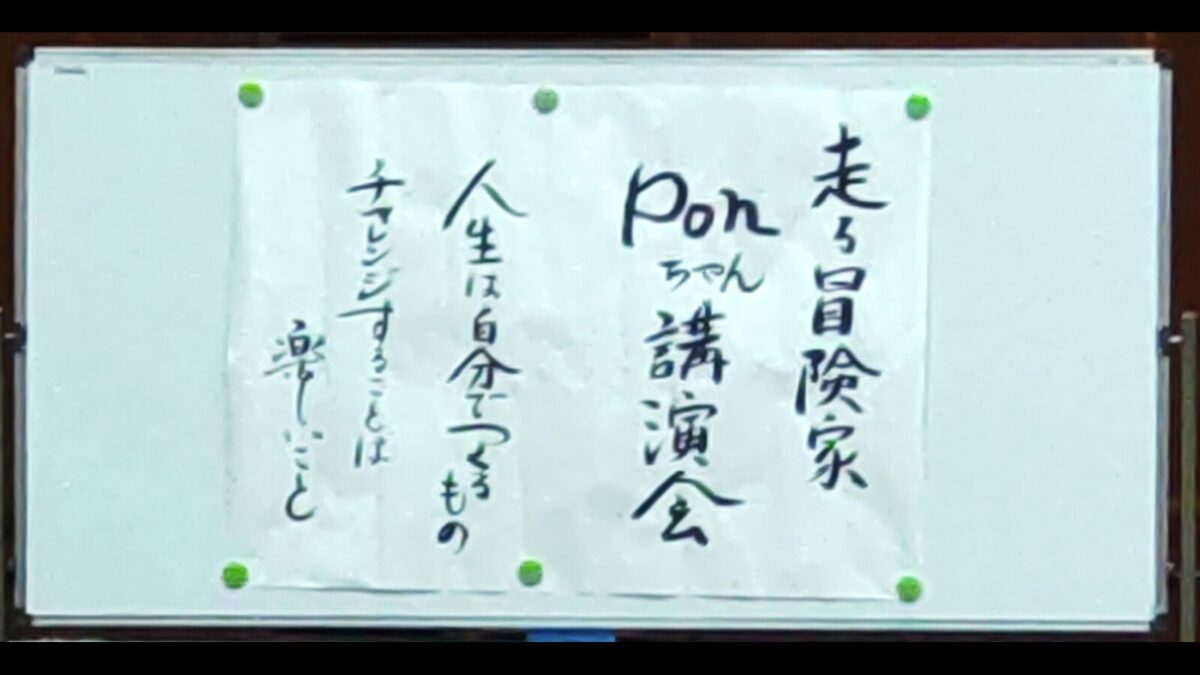 走る冒険家
Ponちゃん講演会
人生は自分でつくるもの
チャレンジすることは
楽しいこと